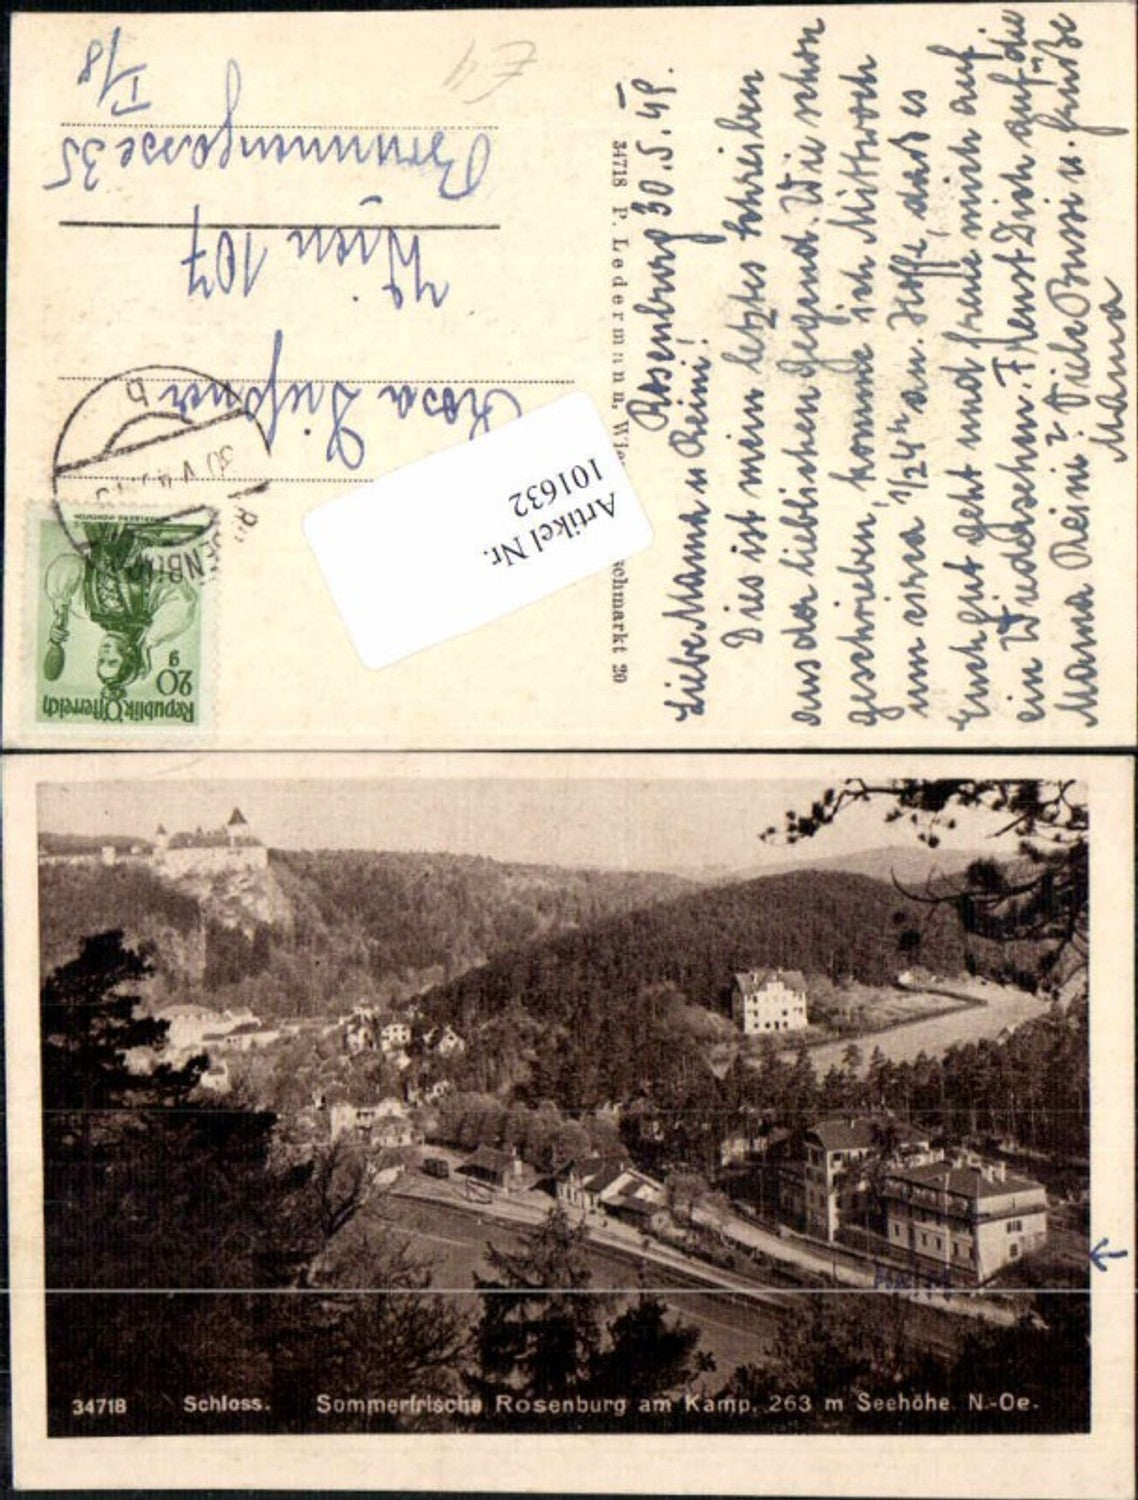 Rosenburg 30.5.49.
Liebe Mama u Reini!
Dies ist mein letztes Schreiben
aus der lieblichen Gegend. Wie schon
geschrieben, komme ich Mittwoch
um cirka 1/24h an. Hoffe, daß es
Euch gut geht und freue mich auf
ein Wiedersehen. Freust Dich auf die
Mama Reini? Viele Bussi u. Grüße
Mama
34718 P. Ledermann, Wien
schmarkt 20
Artikel Nr.
101632
Rosa
Wien 107
Brunnengasse 35
I/8
E4
Republik Österreich
20 g
34718 Schloss. Sommerfrische Rosenburg am Kamp, 263 m Seehöhe. N.-Oe.